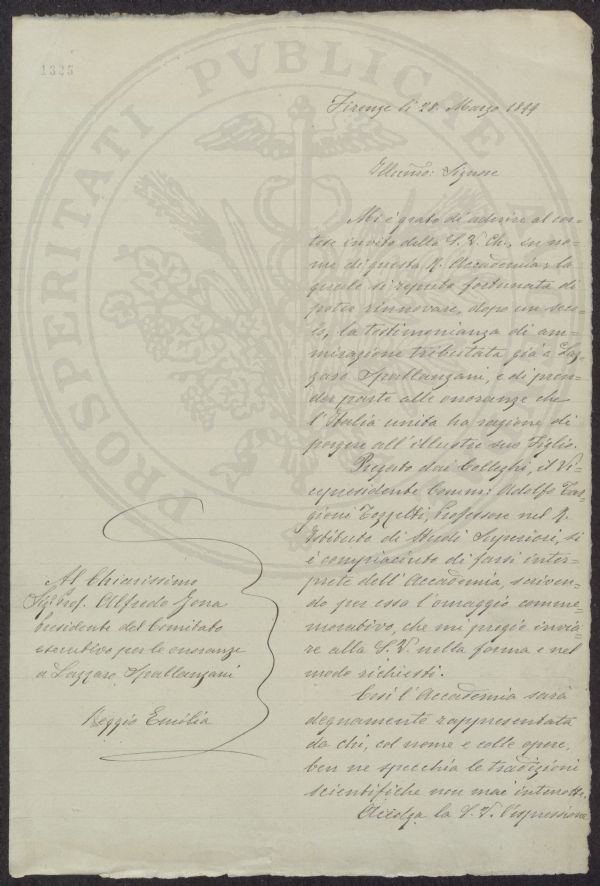 1325
PROSPERITATI PVBLICAE
Firenze li 28. Marzo 1899
Illumo: Signore
Mi è grato di aderire al cor-
tese invito della S. V. Ch., in no-
me di questa R. Accademia, la
quale si reputa fortunata di
poter rinnovare, dopo un seco-
lo, la testimonianza di am-
mirazione tributata già a Laz-
zaro Spallanzani, e di pren-
der parte alle onoranze che
l'Italia unita ha ragione di
porgere all'illustre suo Figlio.
Pregato dai Colleghi, il Vi-
cepresidente Comm: Adolfo Tar-
gioni Tozzetti, Professore nel R.
Istituto di Studi Superiori, si
è compiaciuto di farsi inter-
prete dell'Accademia, scriven-
do per essa l'omaggio comme-
morativo, che mi pregio invia-
re alla S. V. nella forma e nel
modo richiesti.
Così l'Accademia sarà
degnamente rappresentata
da chi, col nome e colle opere,
ben ne specchia le tradizioni
scientifiche non mai interrotte.
Accolga la S. V. l'espressione
Al Chiarissimo
Sig: Prof. Alfredo Jona
Presidente del Comitato
esecutivo per le onoranze
a Lazzaro Spallanzani
Reggio Emilia